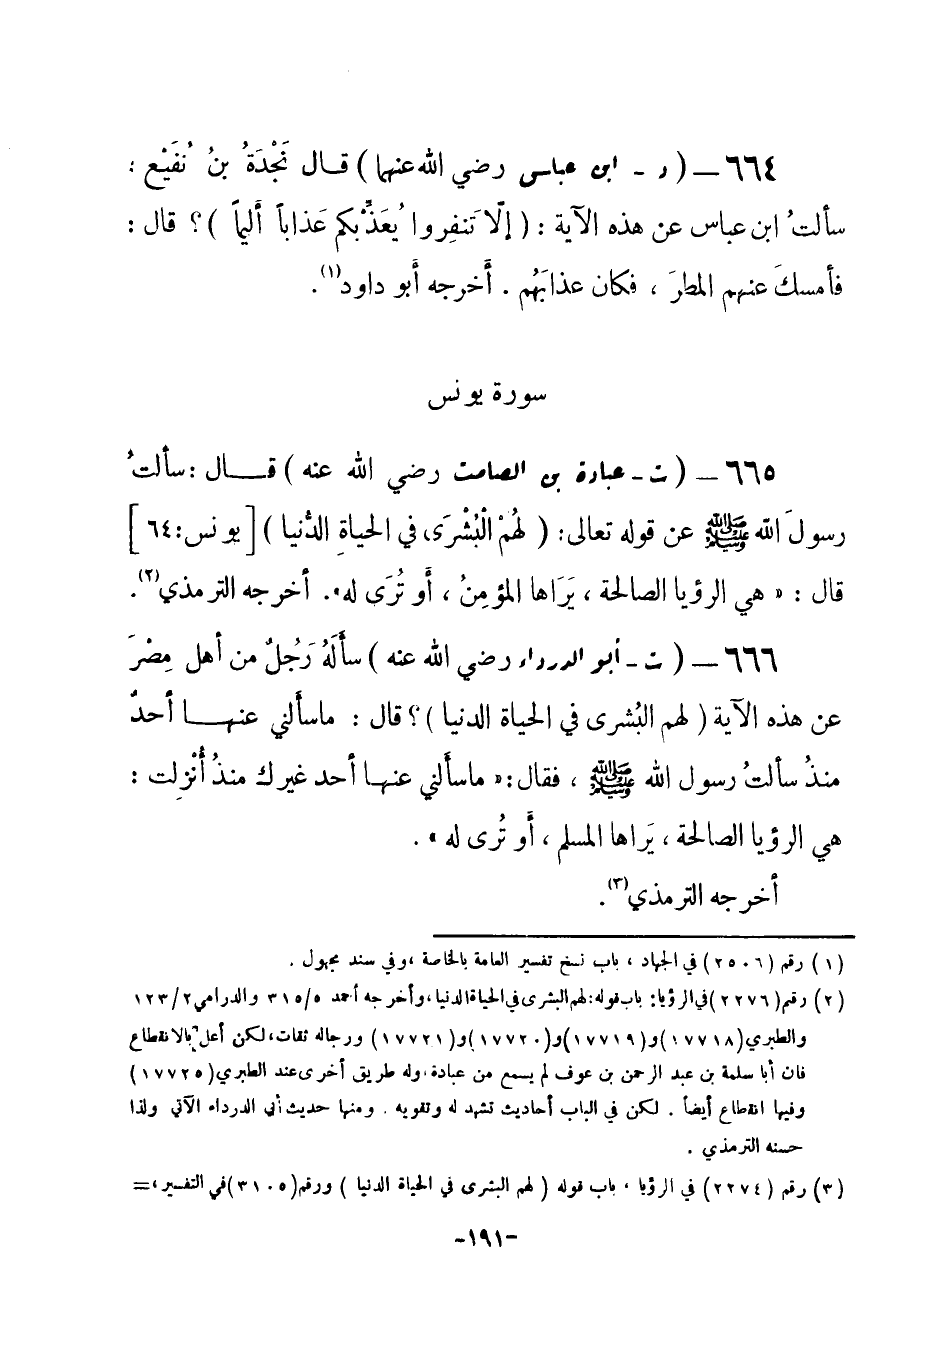 ٦٦٤ – ( د - ابن عباس رضي الله عنهما ) قال نَجْدَةُ بنُ نُفَيْع :
سألتُ ابن عباس عن هذه الآية : ( إلّا تَنفِروا يُعَذِّبْكم عَذاباً أَليماً ) ؟ قال :
فأمسكَ عنهم المطرَ ، فكان عذابَهُم . أَخرجه أَبو داود(١).
سورة يونس
٦٦٥ – ( ت - عبادة بن الصامت رضي الله عنه ) قــال : سألتُ
رسولَ الله ﷺ عن قوله تعالى : ( لهُمْ الْبُشْرَى في الحياةِ الدُّنيا ) [ يونس : ٦٤ ]
قال : « هي الرؤيا الصالحة ، يَرَاها المؤمِنُ ، أَو تُرَى له». أخرجه الترمذي(٢).
٦٦٦ – ( ت - أبو الدرداء رضي الله عنه ) سأَلَهُ رَجُلٌ من أهل مِصْرَ
عن هذه الآية ( لهم البُشرى في الحياة الدنيا ) ؟ قال : ماسأَلني عنهــا أحدٌ
منذُ سألتُ رسول الله ﷺ ، فقال : « ماسأَلني عنهـا أحد غيرك منذُ أُنْزِلت :
هي الرؤيا الصالحة ، يَراها المسلم ، أَو تُرى له » .
أخرجه الترمذي(٣).
(١) رقم (٢٥٠٦) في الجهاد ، باب نسخ تفسير العامة بالخاصة ، وفي سند مجهول .
(٢) رقم (٢٢٧٦) في الرؤيا : باب قوله : لهم البشرى في الحياة الدنيا ، وأخرجه أحمد ٣١٥/٥ والدارمي ١٢٣/٢
والطبري (١٧٧١٨) و(١٧٧١٩) و(١٧٧٢٠) و(١٧٧٢١) ورجاله ثقات ، لكن أعل بالانقطاع
فان أبا سلمة بن عبد الرحمن بن عوف لم يسمع من عبادة ، وله طريق أخرى عند الطبري (١٧٧٢٥)
وفيها انقطاع أيضاً . لكن في الباب أحاديث تشهد له وتقويه . ومنها حديث أبي الدرداء الآتي ولذا
حسنه الترمذي .
(٣) رقم (٢٢٧٤) في الرؤيا ، باب قوله ( لهم البشرى في الحياة الدنيا ) ورقم (٣١٠٥) في التفسير ، =
-١٩١-